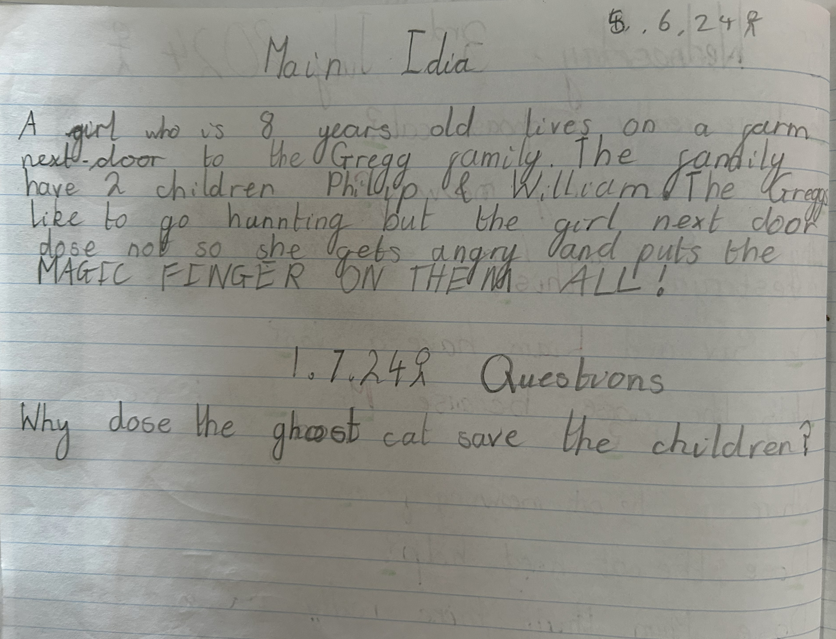 5.6.24
Main Idia
A girl who is 8 years old lives on a farm
next-door to the Gregg family. The famdily
have 2 children Philip & William. The Gregg
like to go hunnting but the girl next door
dose not so she gets angry and puts the
MAGIC FINGER ON THEM ALL!
1.7.24 Questions
Why dose the ghost cat save the children?